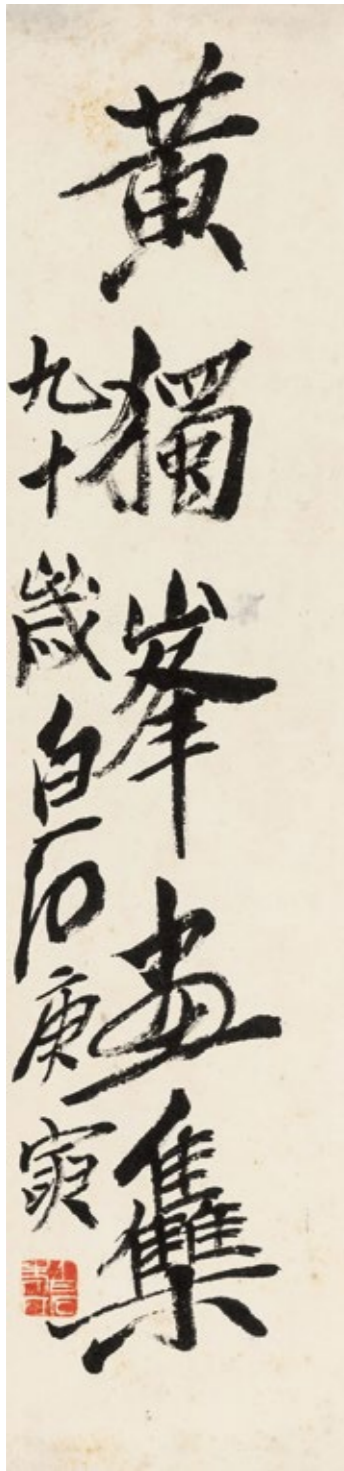 黃獨峯畫集
九十歲白石庚寅